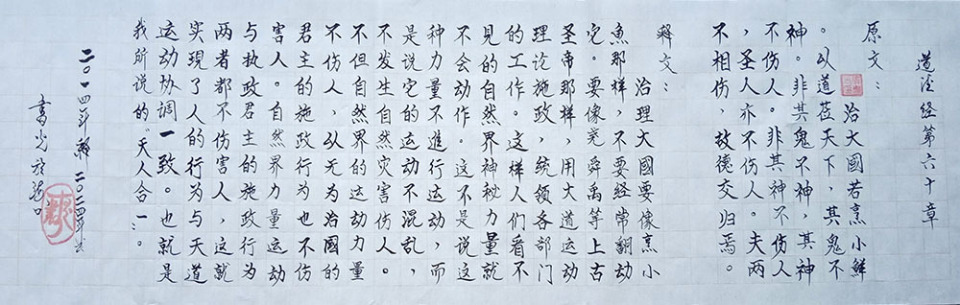 道德经第六十章
原文：
治大國若烹小鲜
。以道莅天下，其鬼不
神。非其鬼不神，其神
不伤人。非其神不伤人
，圣人亦不伤人。夫两
不相伤，故德交归焉。
释文：
治理大國要像烹小
魚那样，不要经常翻动
它。要像尧舜禹等上古
圣帝那样，用大道运动
理论施政，统领各部门
的工作。这样人们看不
见的自然界神秘力量就
不会动作。这不是说这
种力量不進行运动，而
是说它的运动不混乱，
不发生自然灾害伤人。
不但自然界的运动力量
不伤人，以无为治國的
君主的施政行为也不伤
害人。自然界力量运动
与执政君主的施政行为
两者都不伤害人，这就
实現了人的行为与天道
运动协调一致。也就是
我所说的“天人合一”。
二〇一四年释 二〇二四年书